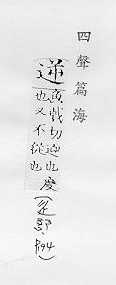 四聲篇海
宜戟切迎也度
也又不從也
(辵部. P.94)